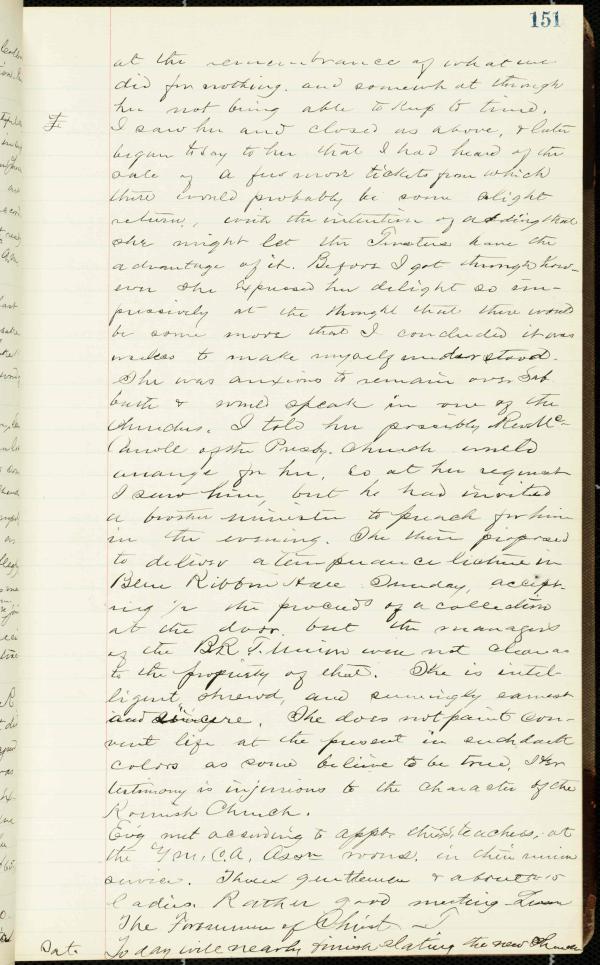 151
at the remembrance of what we
did for nothing. and somewhat through
her not being able to keep to time.
F. I saw her and closed as above, & later
began to say to her that I had heard of the
sale of a few more tickets from which
there would probably be some slight
return, with the intention of adding that
she might let the Trustees have the
advantage of it. Before I got through how-
ever she expressed her delight so im-
pressively at the thought that there would
be some more that I concluded it was
useless to make myself understood.
She was anxious to remain over Sab
bath & would speak in one of the
churches. I told her possibly Rev. Mc-
of the Presby. Church would
arrange for her, so at her request
I saw him, but he had invited
a brother minister to preach for him
in the evening. She then proposed
to deliver a temperance lecture in
Blue Ribbon Hall Sunday, accept-
ing the proceeds of a collection
at the door, but the managers
of the B.R.T. Union were not clear as
to the propriety of that. She is intel-
ligent, shrewd, and seemingly earnest
and sincere. She does not paint con-
vent life at the present in such dark
colors as some believe to be true. Her
testimony is injurious to the character of the
Romish Church.
Evg met according to appt. the S.S. teachers, at
the Y.M.C.A. Assn rooms, in their union
service. Three gentlemen & about 10
ladies. Rather good meeting.
The Forerunner of Christ
Sat. To day will nearly finish slating the new Church